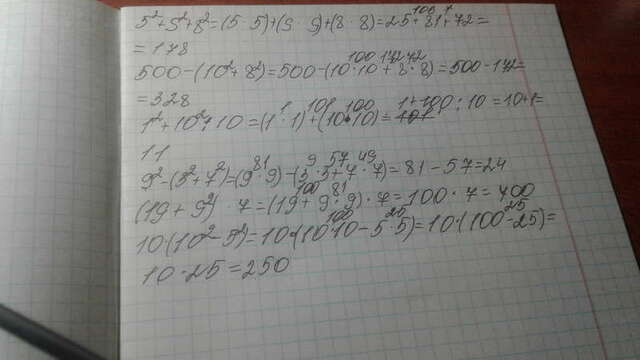 5²+9²+8²=(5·5)+(9·9)+(8·8)=25+81+72=
=178
500-(10²+8²)=500-(10·10+8·8)=500-172=
=328
1²+10²:10=(1·1)+(10·10)= 1+100:10=10+1=
11
9²-(3²+7²)=(9·9)-(3·3+7·7)=81-57=24
(19+9²)·7=(19+9·9)·7=100·7=700
10·(10²-5²)=10·(10·10-5·5)=10·(100-25)=
10·25=250